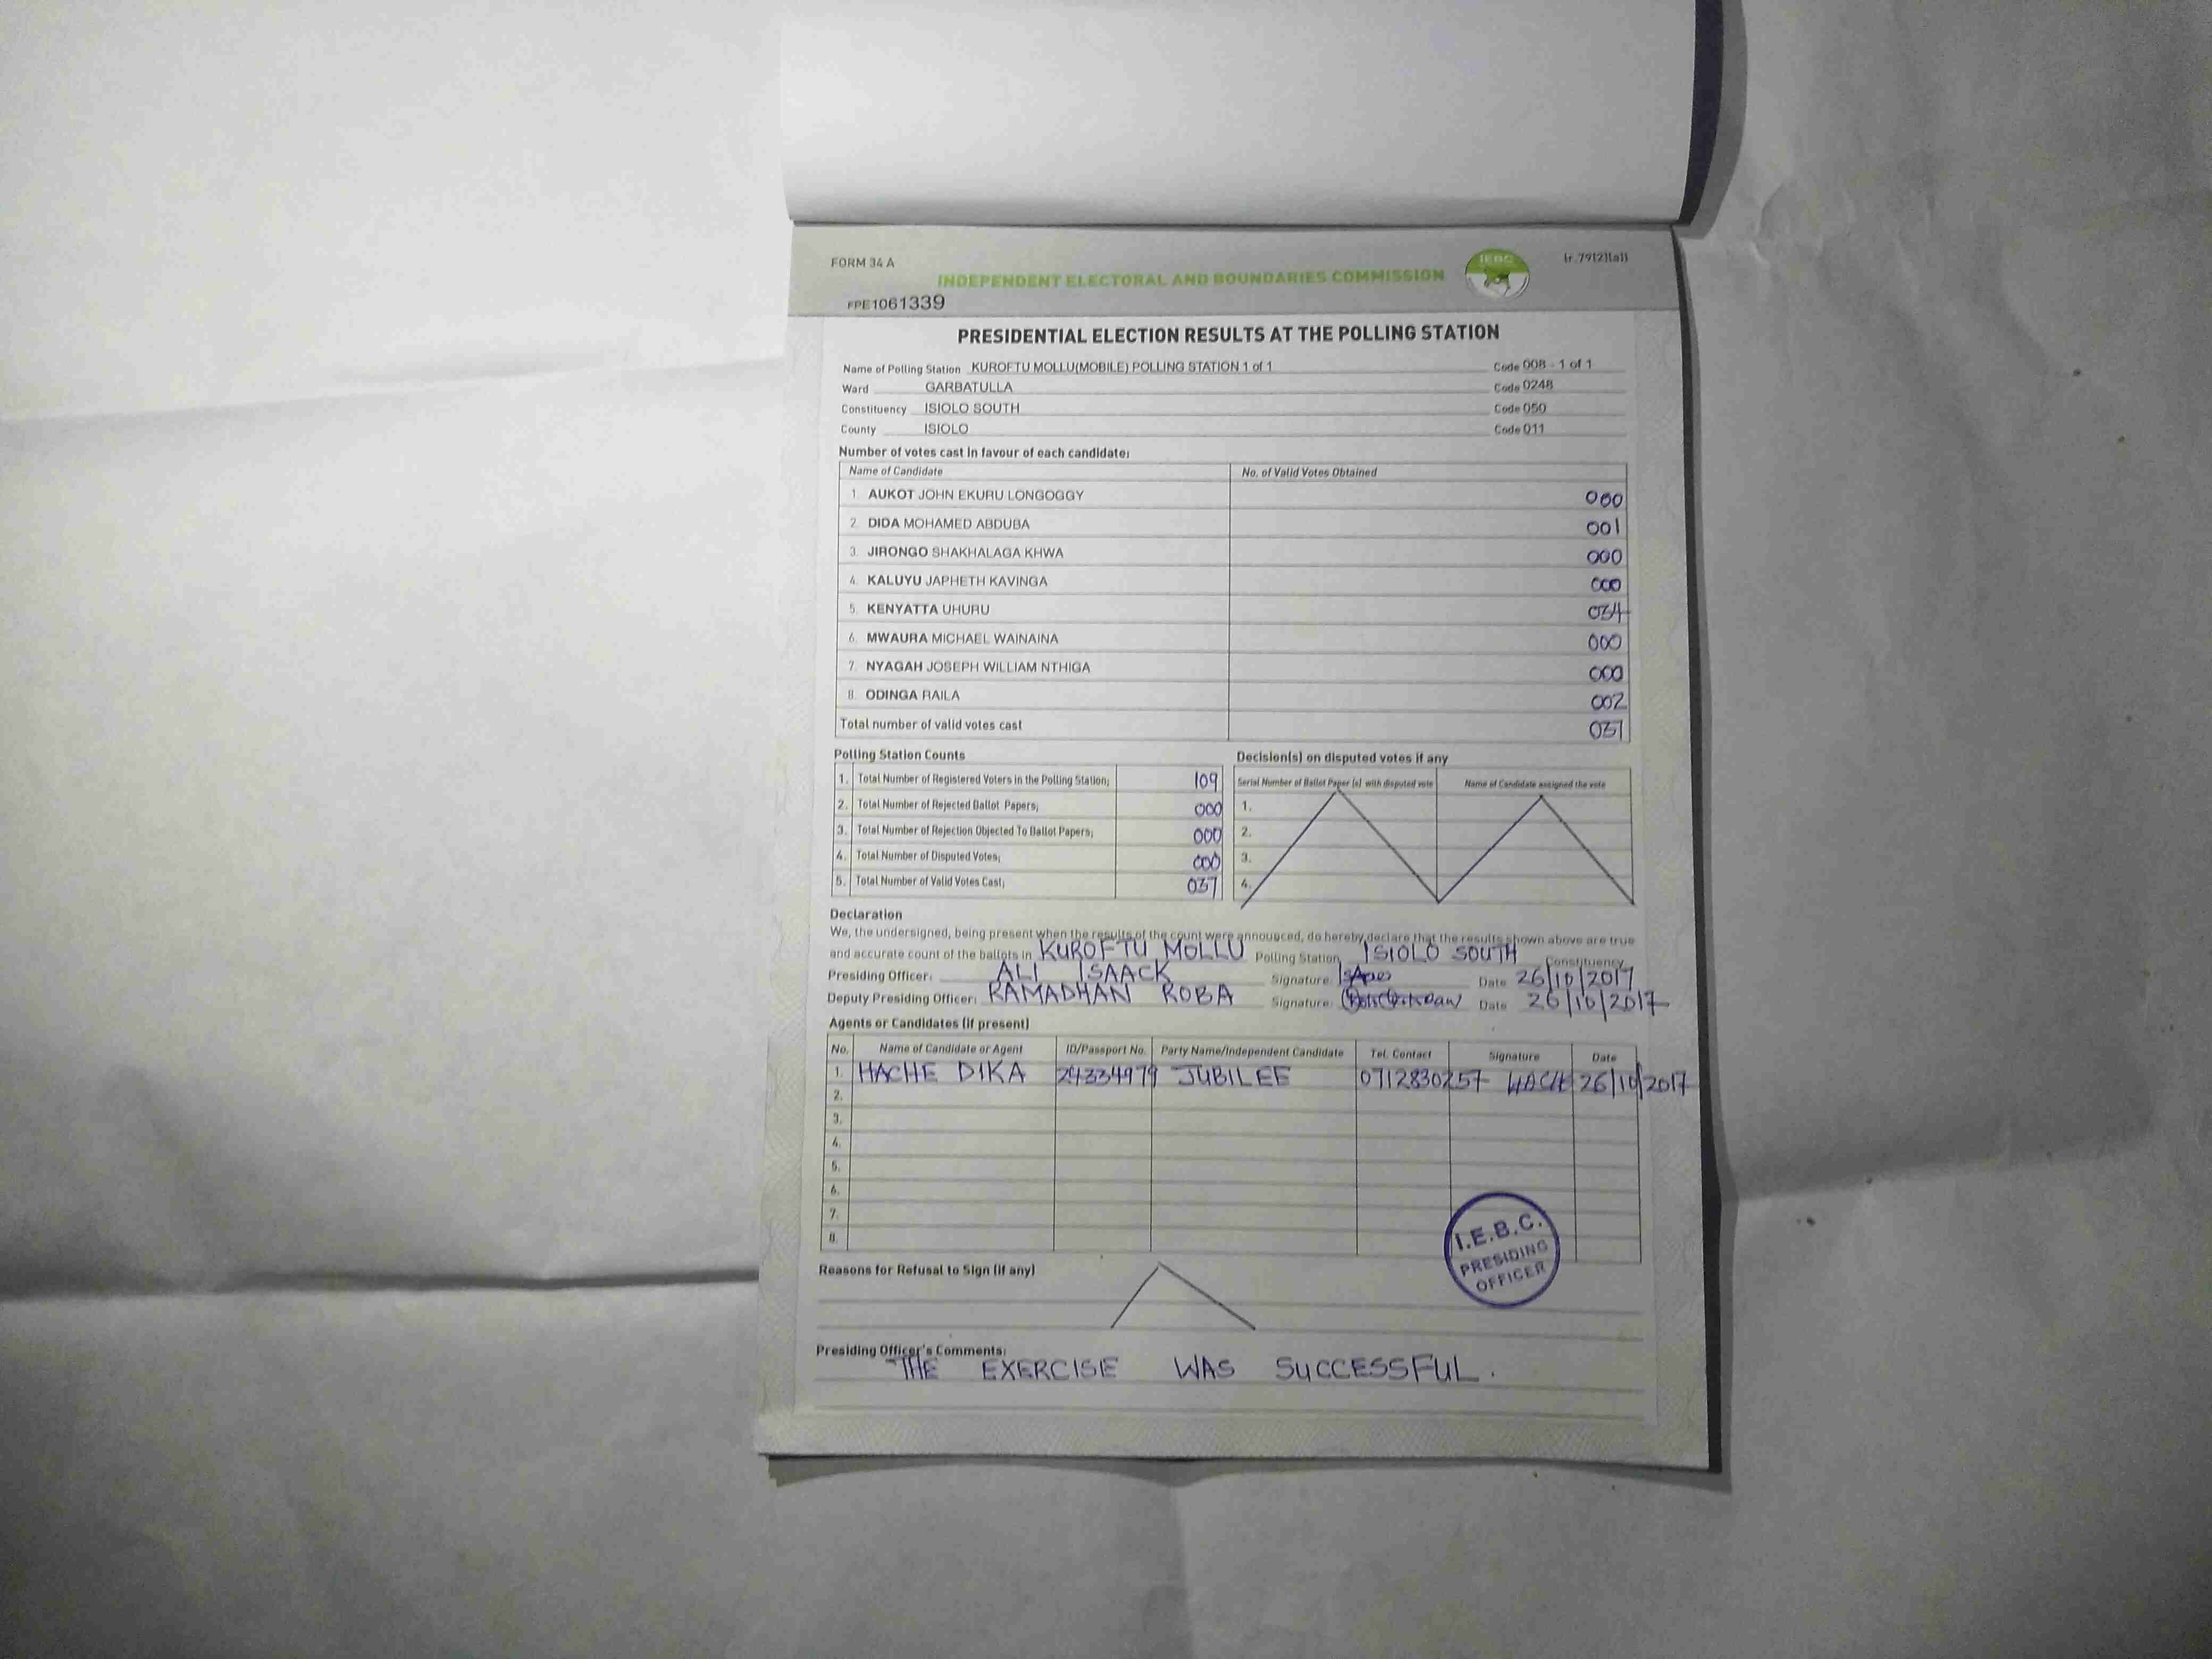 FORM 34 A
(r.79(2)(a))
INDEPENDENT ELECTORAL AND BOUNDARIES COMMISSION
IEBC
FPE1061339
PRESIDENTIAL ELECTION RESULTS AT THE POLLING STATION
Name of Polling Station KUROFTU MOLLU(MOBILE) POLLING STATION 1 of 1 Code 008 - 1 of 1
Ward GARBATULLA Code 0248
Constituency ISIOLO SOUTH Code 050
County ISIOLO Code 011
Number of votes cast in favour of each candidate;
Name of Candidate No. of Valid Votes Obtained
1. AUKOT JOHN EKURU LONGOGGY 000
2. DIDA MOHAMED ABDUBA 001
3. JIRONGO SHAKHALAGA KHWA 000
4. KALUYU JAPHETH KAVINGA 000
5. KENYATTA UHURU 034
6. MWAURA MICHAEL WAINAINA 000
7. NYAGAH JOSEPH WILLIAM NTHIGA 000
8. ODINGA RAILA 002
Total number of valid votes cast 037
Polling Station Counts
1. Total Number of Registered Voters in the Polling Station; 109
2. Total Number of Rejected Ballot Papers; 000
3. Total Number of Rejection Objected To Ballot Papers; 000
4. Total Number of Disputed Votes; 000
5. Total Number of Valid Votes Cast; 037
Decision(s) on disputed votes if any
Serial Number of Ballot Paper (s) with disputed vote Name of Candidate assigned the vote
1.
2.
3.
4.
Declaration
We, the undersigned, being present when the results of the count were announced, do hereby declare that the results shown above are true
and accurate count of the ballots in KUROFTU MOLLU Polling Station ISIOLO SOUTH Constituency
Presiding Officer: ALI ISAACK Signature Date 26/10/2017
Deputy Presiding Officer: RAMADHAN ROBA Signature: Date 26/10/2017
Agents or Candidates (if present)
No. Name of Candidate or Agent ID/Passport No. Party Name/Independent Candidate Tel. Contact Signature Date
1. HACHE DIKA 24334979 JUBILEE 0712830257 HACHE 26/10/2017
2.
3.
4.
5.
6.
7.
8.
I.E.B.C.
PRESIDING
OFFICER
Reasons for Refusal to Sign (if any)
Presiding Officer's Comments:
THE EXERCISE WAS SUCCESSFUL.